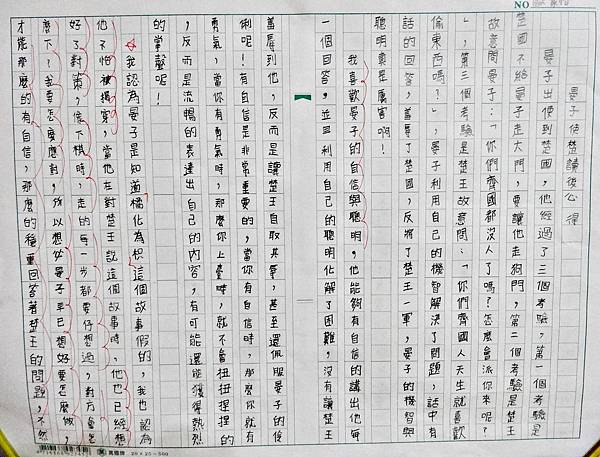 晏子使楚讀後心得
晏子出使到楚國，他經過了三個考驗，第一個考驗是
楚國不給晏子走大門，要讓他走狗門，第二個考驗是楚王
故意問晏子：「你們齊國都沒人了嗎？怎麼會派你來呢？
」，第三個考驗是楚王故意問：「你們齊國人天生就喜歡
偷東西嗎？」，晏子利用自己的機智解決了問題，話中有
話的回答，羞辱了楚國，反將了楚王一軍，晏子的機智與
聰明真是厲害啊！
我喜歡晏子的自信與聰明，他能夠有自信的講出他每
一個回答，並且利用自己的聰明化解了困難，沒有讓楚王
羞辱到他，反而是讓楚王自取其辱，甚至還佩服晏子的伶
俐呢！有自信是非常重要的，當你有自信時，那麼你就有
勇氣，當你有勇氣時，那麼你上臺時，就不會扭扭捏捏的
，反而是流暢的表達出自己的內容，有可能還能獲得熱烈
的掌聲呢！
我認為晏子是知道橘化為枳這個故事假的，我也認為
他不怕被揭穿，當他在對楚王說這個故事時，他也已經想
好了對策，像下棋時，走的每一步都要仔想過，對方會怎
麼下？我要怎麼應對，所以想必晏子早已想好要怎麼做，
才能那麼的有自信，那麼的穩重回答著楚王的問題，不然
NO
萬國牌 20×25=500